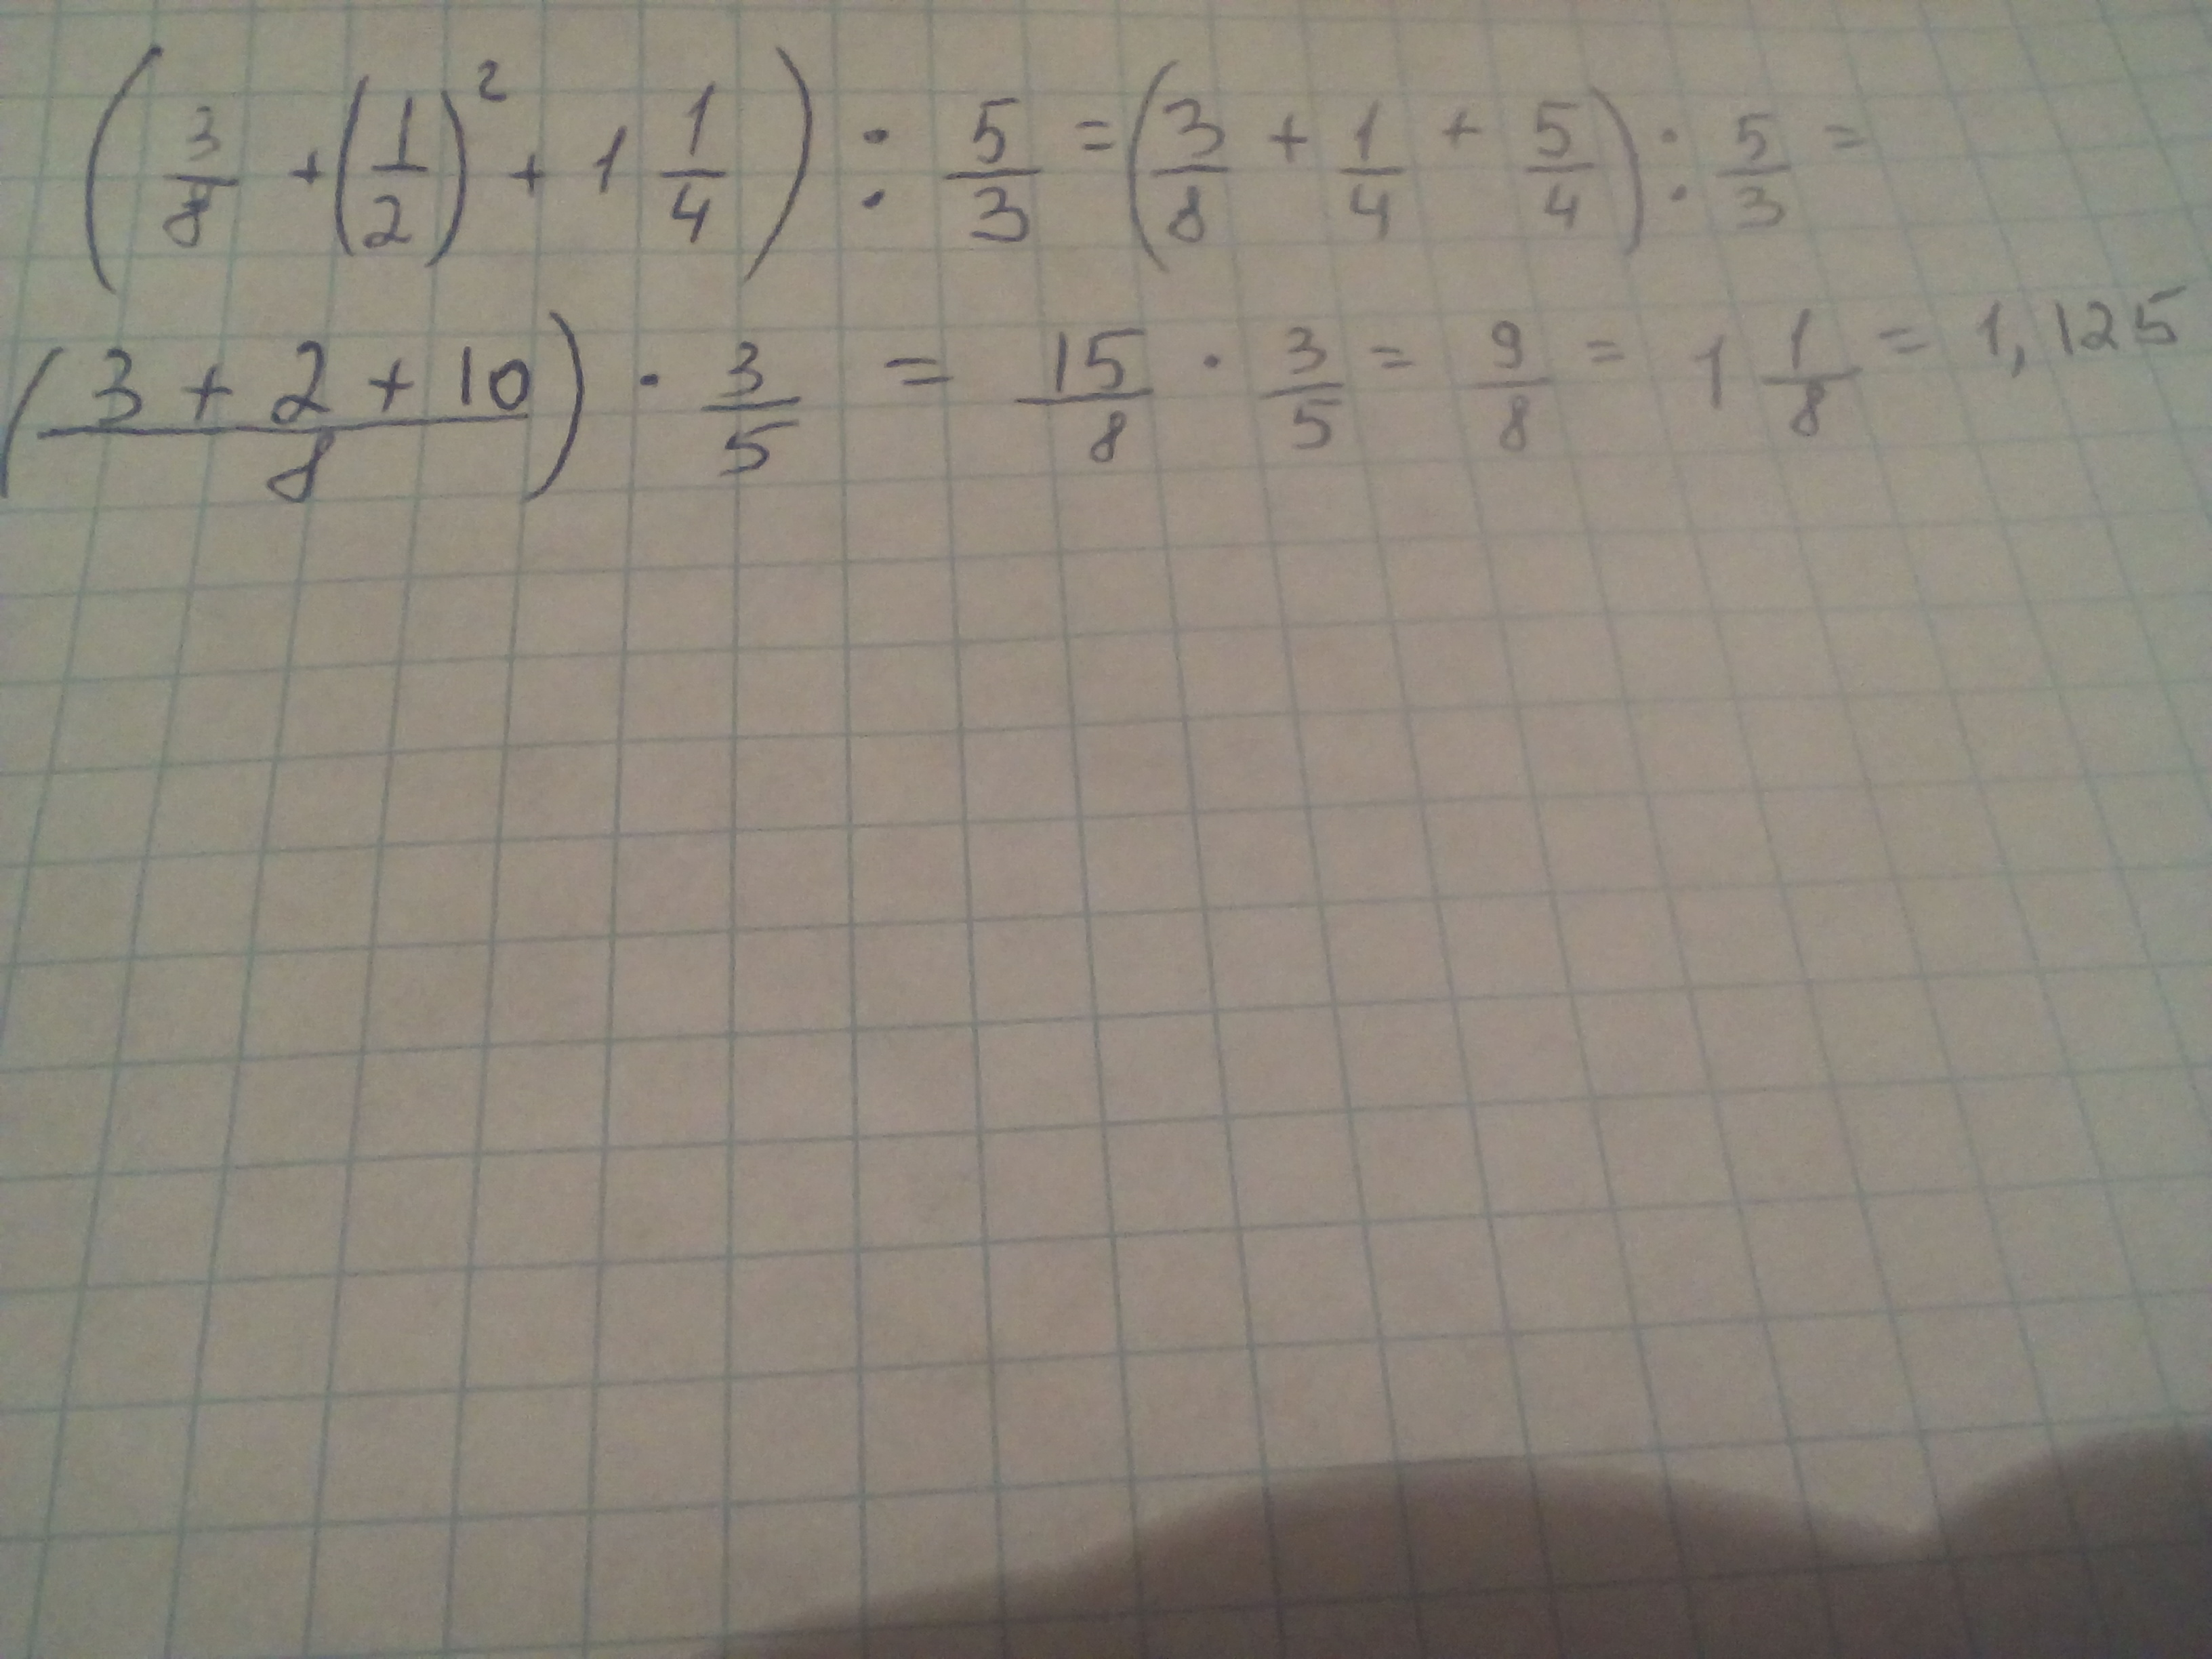 (3/8 + (1/2)² + 1 1/4) : 5/3 = (3/8 + 1/4 + 5/4) : 5/3 =
((3 + 2 + 10)/8) · 3/5 = 15/8 · 3/5 = 9/8 = 1 1/8 = 1,125